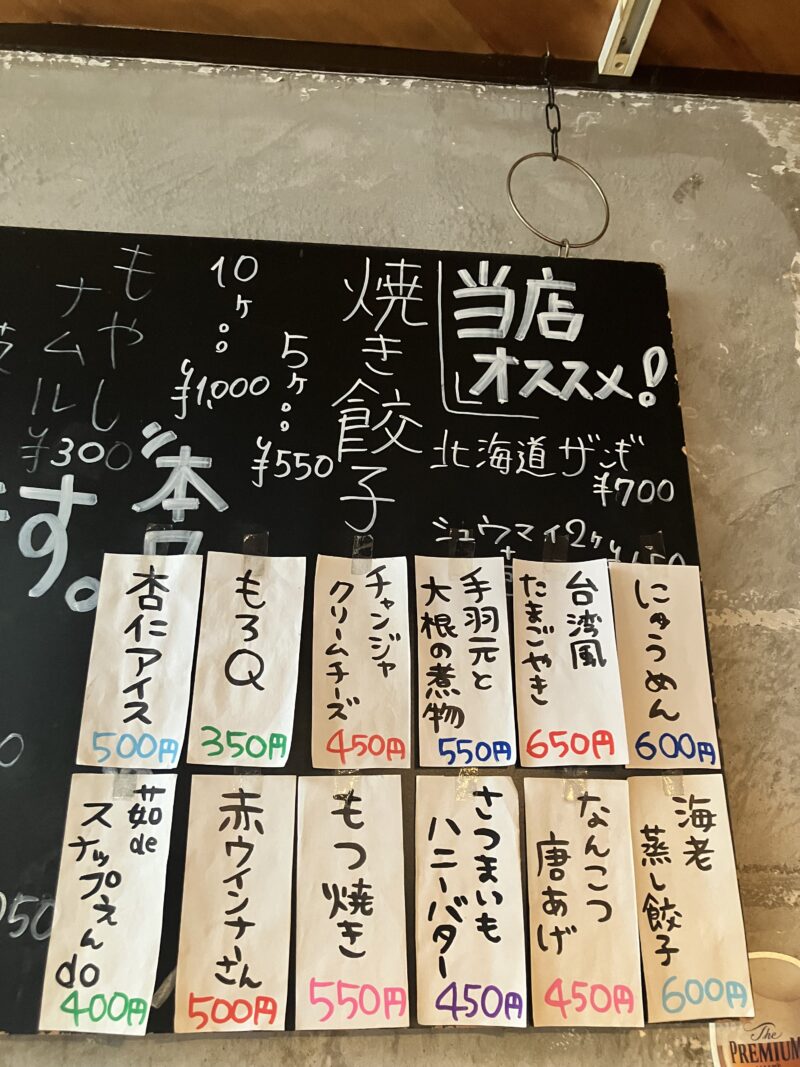 当店
オススメ!
北海道ザンギ
¥700
シュウマイ2ヶ
焼き餃子
5ヶ
¥550
10ヶ
¥1,000
もやし
ナムル
¥300
本日
す。
にゅうめん
600円
台湾風
たまごやき
650円
手羽元と
大根の煮物
550円
チャンジャ
クリームチーズ
450円
もろQ
350円
杏仁アイス
500円
海老
蒸し餃子
600円
なんこつ
唐あげ
450円
さつまいも
ハニーバター
450円
もつ焼き
550円
赤ウインナーさん
500円
茹de
スナップえんdo
400円
The
PREMIUM